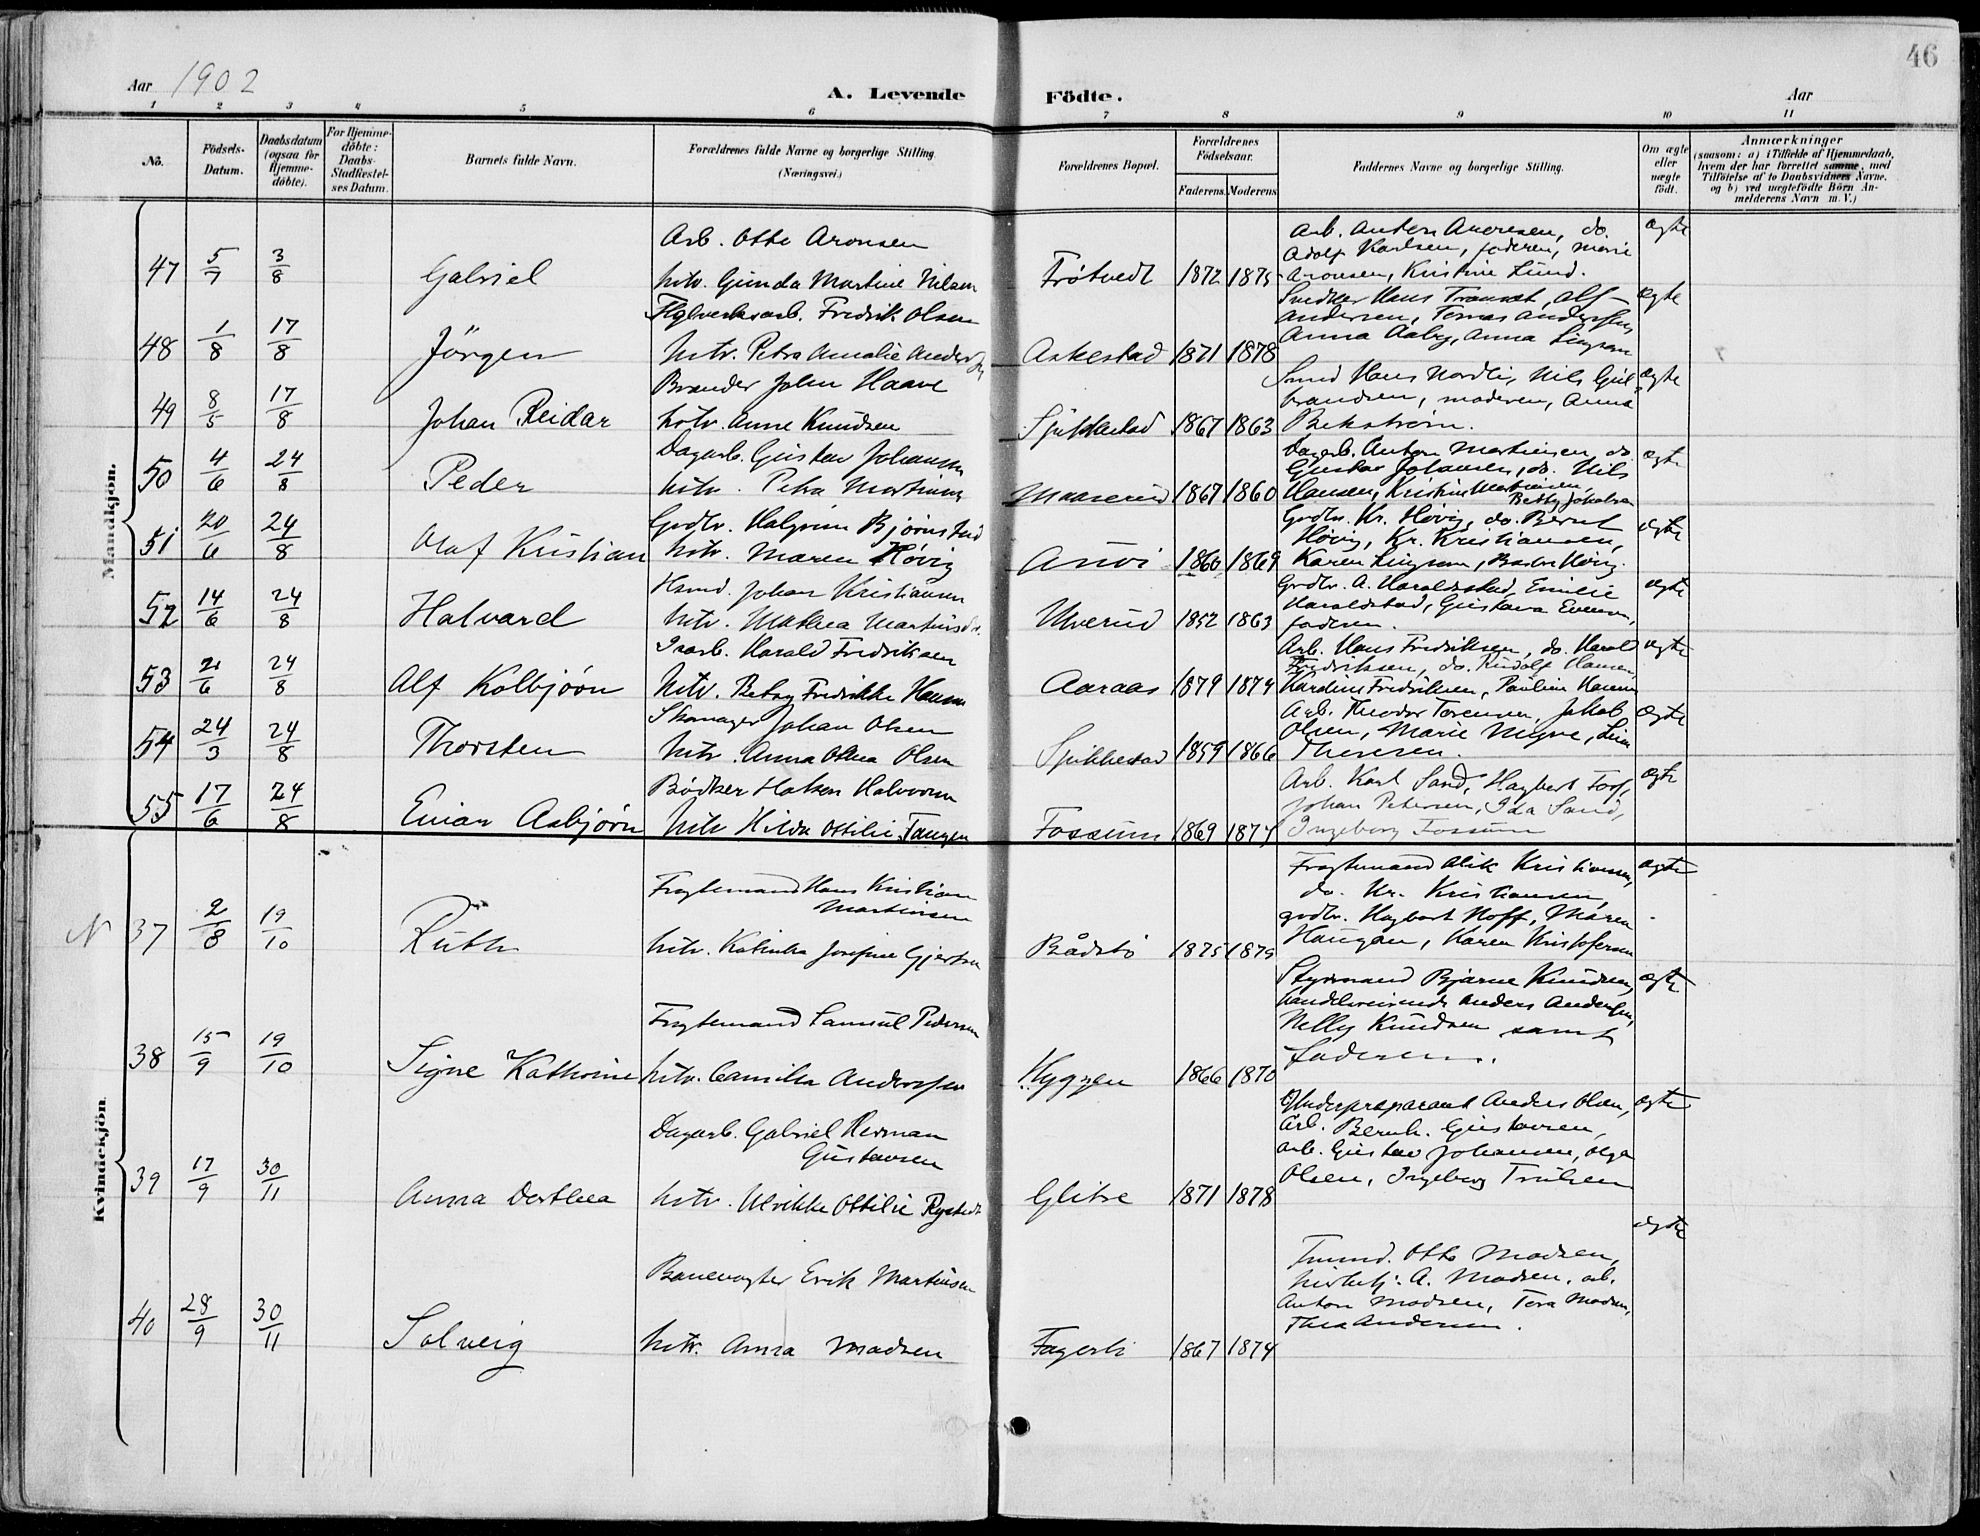 46
Aar 1902
A. Levende Födte.
Aar
1 2 3 4 5 6 7 8 9 10 11
No.
Födsels-Datum.
Daabsdatum (ogsaa for Hjemme-döbte).
For Hjemme-döbte: Daabs-Stadfæstel-ses Datum.
Barnets fulde Navn.
Forældrenes fulde Navne og borgerlige Stilling.
(Næringsvei.)
Forældrenes Bopæl.
Forældrenes Födselsaar.
Faderens. Moderens.
Faddernes Navne og borgerlige Stilling.
Om ægte eller uægte födt.
Anmærkninger
(saasom: a) i Tilfælde af Hjemmedaab, hvem der har forrettet samme, med Tilföielse af to Daabsvidners Navne, og b) ved uægtefödte Börn An-melderens Navn m. V.)
Mandkjön.
47 5/7 3/8 Gabriel
Arb. Otto Aronsen
hstr. Gunda Martine Nilsen
Frötvedt 1872 1875
Arb. Anton Andresen, do.
Adolf Karlsen, faderen, Marie
Aronsen, Kristine Lund.
ægte
48 1/8 17/8 Jörgen
Fredrik Olsen
hstr. Petra Amalie
Askestad 1871 1878
Snedker Hans
Andersen, Tomas Anderssen,
Anna Aaby, Anna
ægte
49 8/5 17/8 Johan Reidar
Brænder John Haave
hstr. Anne Knudsen
Spikkestad 1867 1863
Smed Hans Nordli, Nils Gul-
brandsen, moderen, Anna
ægte
50 4/6 24/8 Peder
Dagarb. Gustav Johansen
hstr. Petra Martinsen
1867 1860
Dagarb. Anton Martinsen, do.
Gustav Johansen, do. Nils
Hansen, Kristine Martinsen,
ægte
51 20/6 24/8 Olaf Kristian
Grdbr. Halgrim Bjørnstad
hstr. Maren Høvig
1866 1869
Grdbr. Kr. Høvig, do. Bernt
Høvig, Kr. Kristiansen,
Karen
ægte
52 14/6 24/8 Halvard
Johan Kristiansen
hstr. Mathea
Ulverud 1852 1863
Grdbr. A. Haraldstad, Emilie
Haraldstad, Gustava
faderen.
ægte
53 2/6 24/8 Alf Kolbjørn
Harald Fredriksen
hstr. Betsy Fredrikke Hansen
Aaraas 1879 1874
Arb. Hans Fredriksen, do. Harald
Fredriksen, do. Rudolf Hansen
Fredriksen, Pauline Hansen
ægte
54 24/3 24/8 Thorsten
Skomager Johan Olsen
hstr. Anna Othea Olsen
Spikkestad 1859 1866
Arb. Theodor Torensen, Jakob
Olsen, Marie
Theresen.
ægte
55 17/6 24/8 Einar Asbjørn
Bødker Hakon Halvorsen
hstr. Hilda Ottilie Tangen
Fossum 1869 1874
Arb. Karl Sand, Hagbart
Johan Petersen, Ida Sand,
Ingeborg Fossum
ægte
Kvindekjön
N 37 2/8 19/10 Ruth
Fragtemand Hans Kristian
Martinsen
hstr. Katinka Josefine Gjertsen
Bådstö 1875 1875
Fragtemand Kristiansen,
do. Kr. Kristiansen,
grdbr. Hagbart Hoff, Maren
Haugan, Karen Kristofersen
ægte
38 15/9 19/10 Signe Kathrine
Fragtemand Samuel Pedersen
hstr. Camilla Anderssen
Hyggen 1866 1870
Styrmand Bjarne Knudsen,
handelsreisende Anders Anderssen,
Nelly Knudsen samt
faderen.
ægte
39 17/9 30/11 Anna Dorthea
Dagarb. Gabriel Herman
Gustavsen
hstr. Ulrikke Ottilie Rystedt
Glitre 1871 1878
Anders Olsen,
Arb. Bernh. Gustavsen,
arb. Gustav Johansen, Olga
Olsen, Ingeborg Trulsen
ægte
40 28/9 30/11 Solveig
Banevogter Erik Martinsen
hstr. Anna Madsen
Fagerli 1867 1874
Otto Madsen,
A. Madsen, arb.
Anton Madsen, Tora Madsen,
Thea Andersen.
ægte